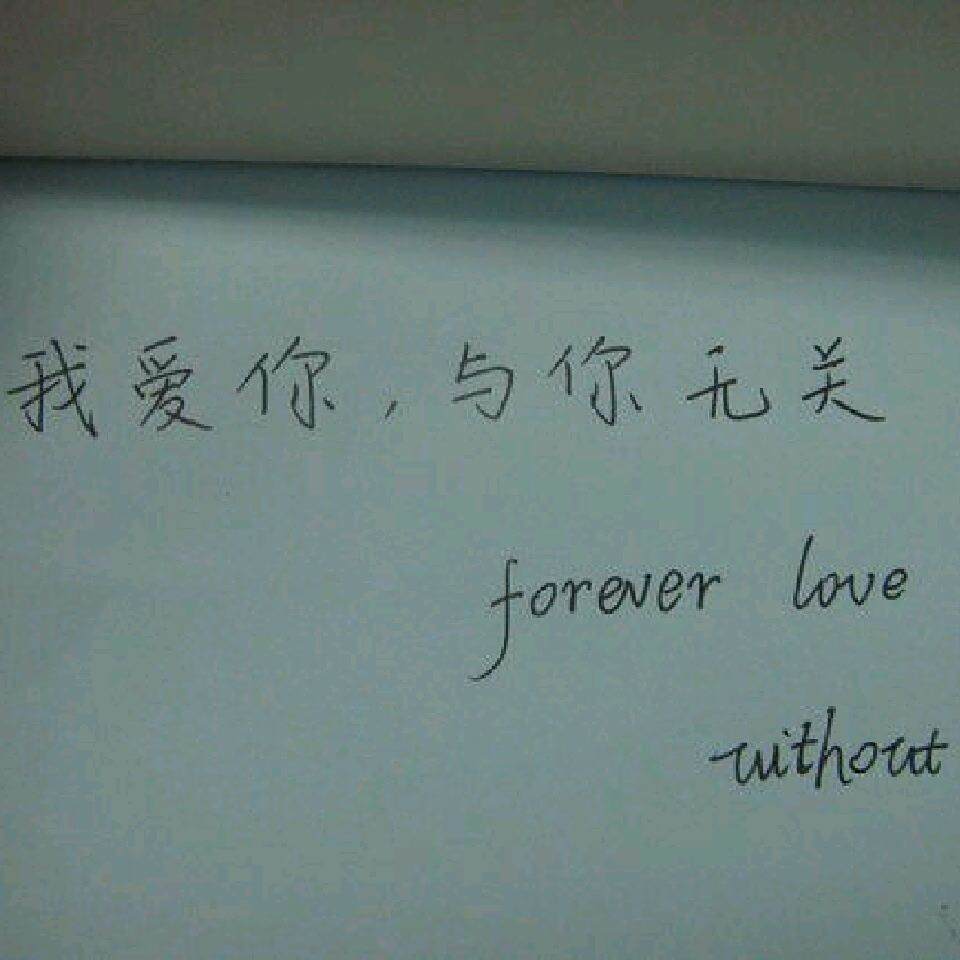 我爱你,与你无关
forever love
without